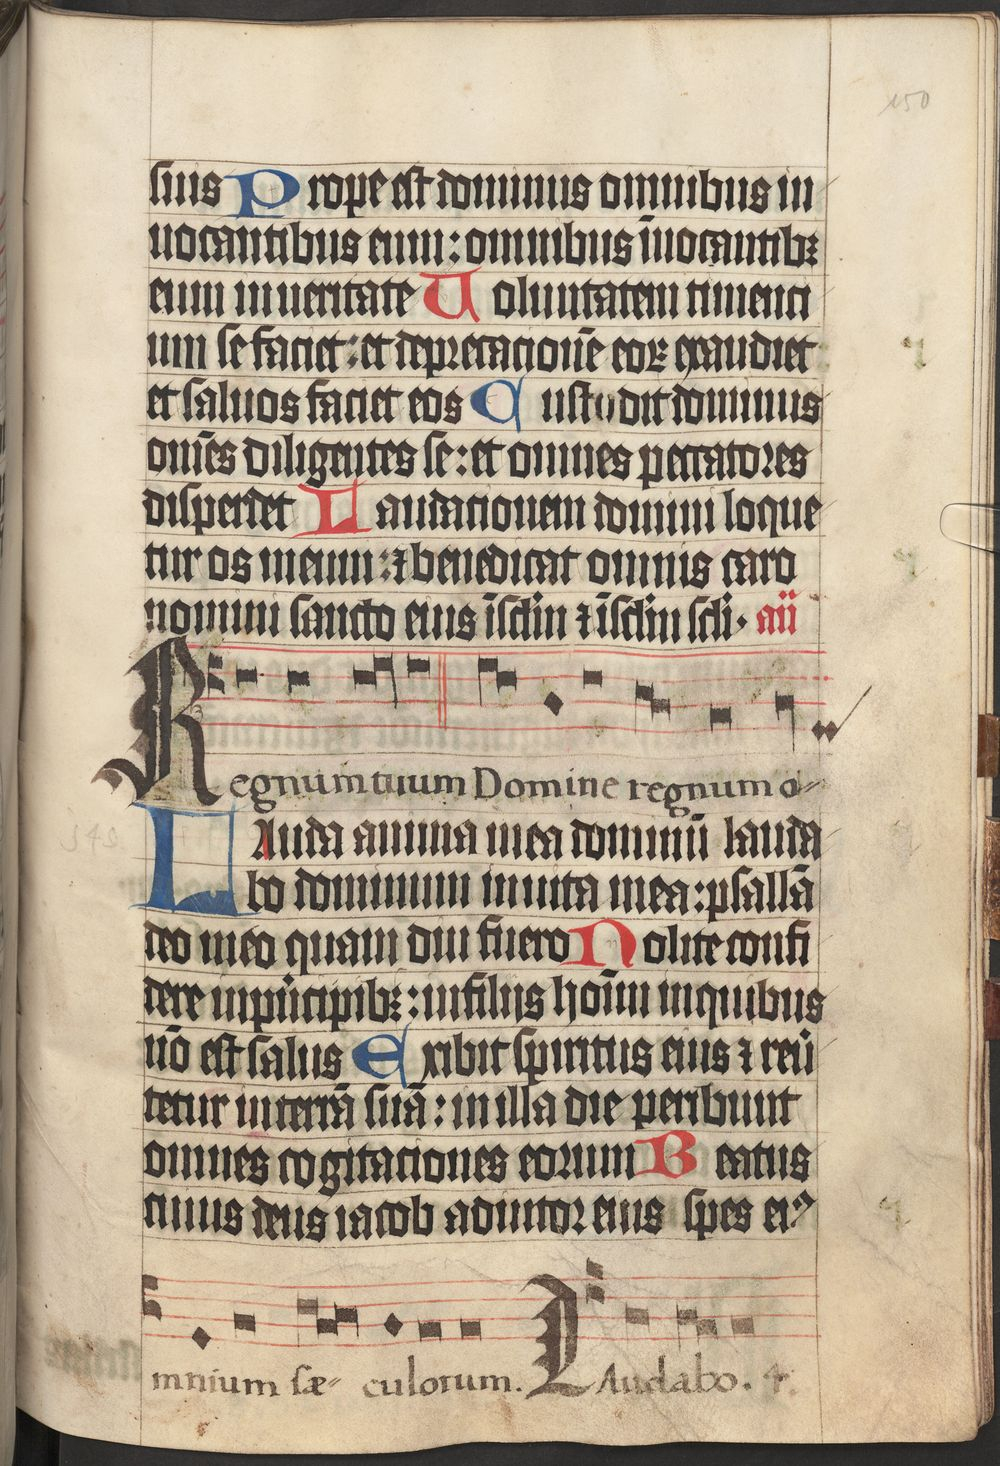 150
suis Prope est dominus omnibus in
uocantibus eum: omnibus īuocantibꝫ
eum in ueritate Voluntatem timenti
um se faciet: et deprecacionē eoꝝ exaudiet
et saluos faciet eos Custodit dominus
om̄es diligentes se: et omnes peccatores
disperdet Laudacionem domini loque
tur os meum: ⁊ benedicat omnis caro
nomini sancto eius ī sclm̄ ⁊ ī sclm̄ scli. an̄
Regnum tuum Domine regnum o-
Lauda anima mea dominū lauda
bo dominum in uita mea: psallā
deo meo quam diu fuero Nolite confi
dere in pn̄cipibꝫ: in filijs hoīm in quibus
nō est salus Exibit spiritus eius ⁊ reū
tetur in terrā suā: in illa die peribunt
omnes cogitaciones eorum Beatus
cuius deus iacob adiutor eius spes eiꝰ
mnium sæ- culorum. Laudabo. 4.